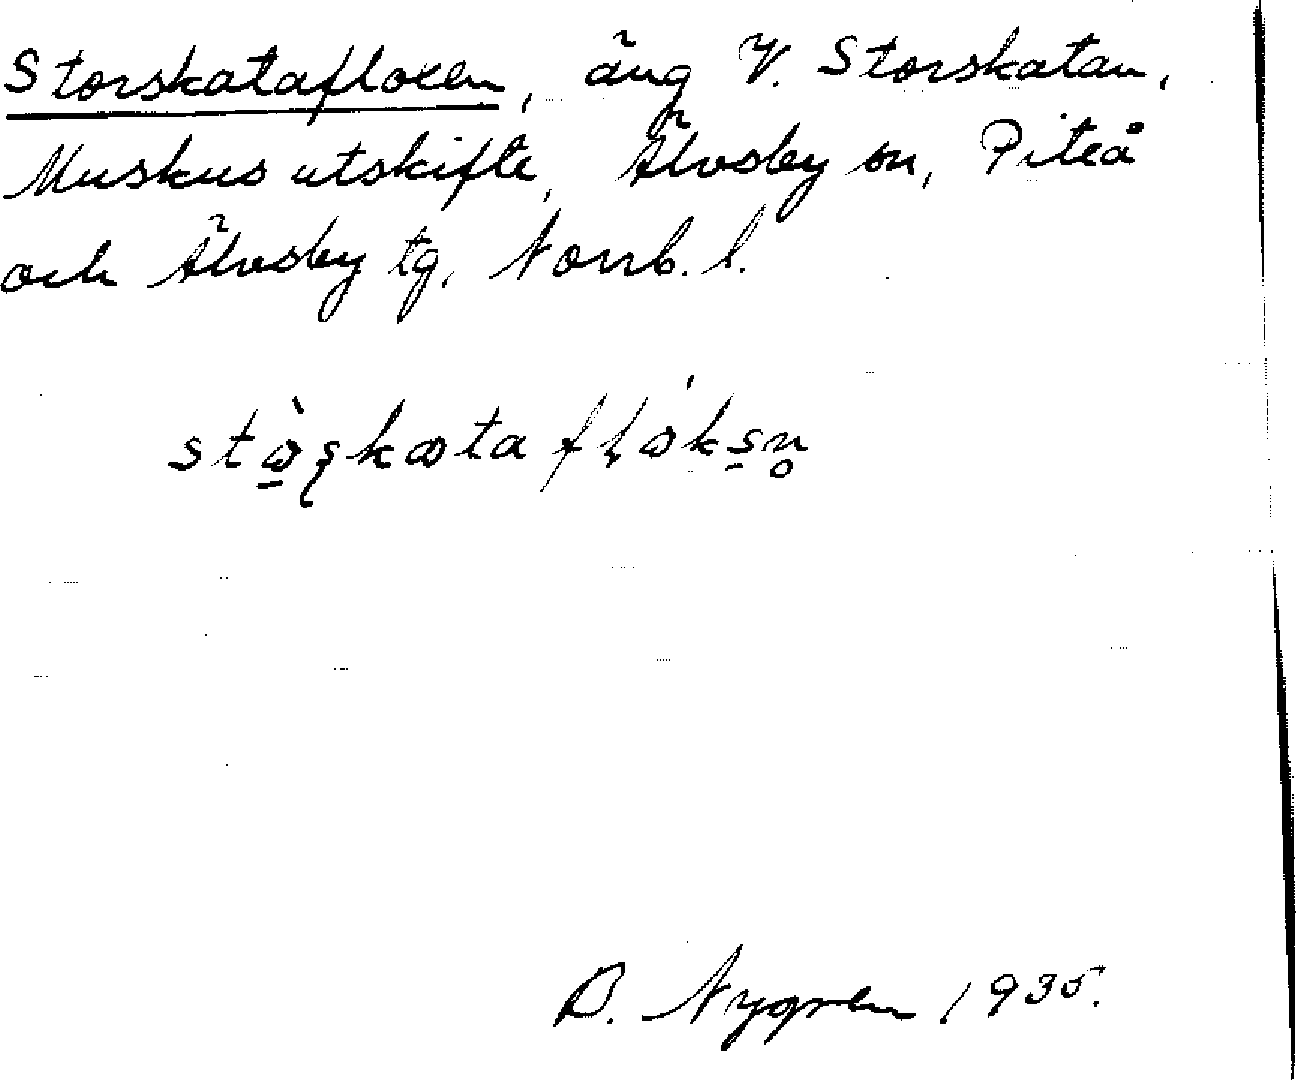 Storskatafloxen, äng V. Storskatan,
Muskus utskifte, Älvsby sn, Piteå
och Älvsby tg, Norrb. l.
B. Nygren 1935.